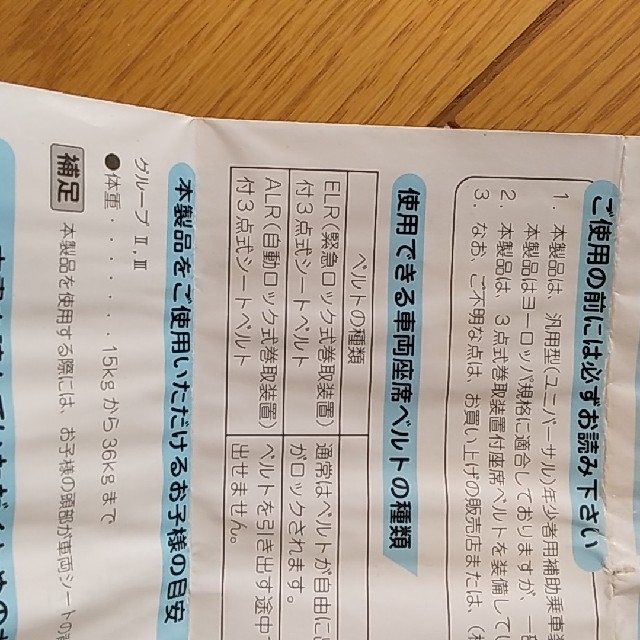 ご使用の前には必ずお読み下さい
1. 本製品は、汎用型(ユニバーサル)年少者用補助乗車装
本製品はヨーロッパ規格に適合しておりますが、一
2. 本製品は、3点式巻取装置付座席ベルトを装備してい
3. なお、ご不明な点は、お買い上げの販売店または、(
使用できる車両座席ベルトの種類
ベルトの種類
ELR(緊急ロック式巻取装置)
付3点式シートベルト
通常はベルトが自由に
がロックされます。
ALR(自動ロック式巻取装置)
付3点式シートベルト
ベルトを引き出す途中
出せません。
本製品をご使用いただけるお子様の目安
グループⅡ,Ⅲ
●体重・・・・・・・・15kgから36kgまで
補足
本製品を使用する際には、お子様の頭部が車両シートの